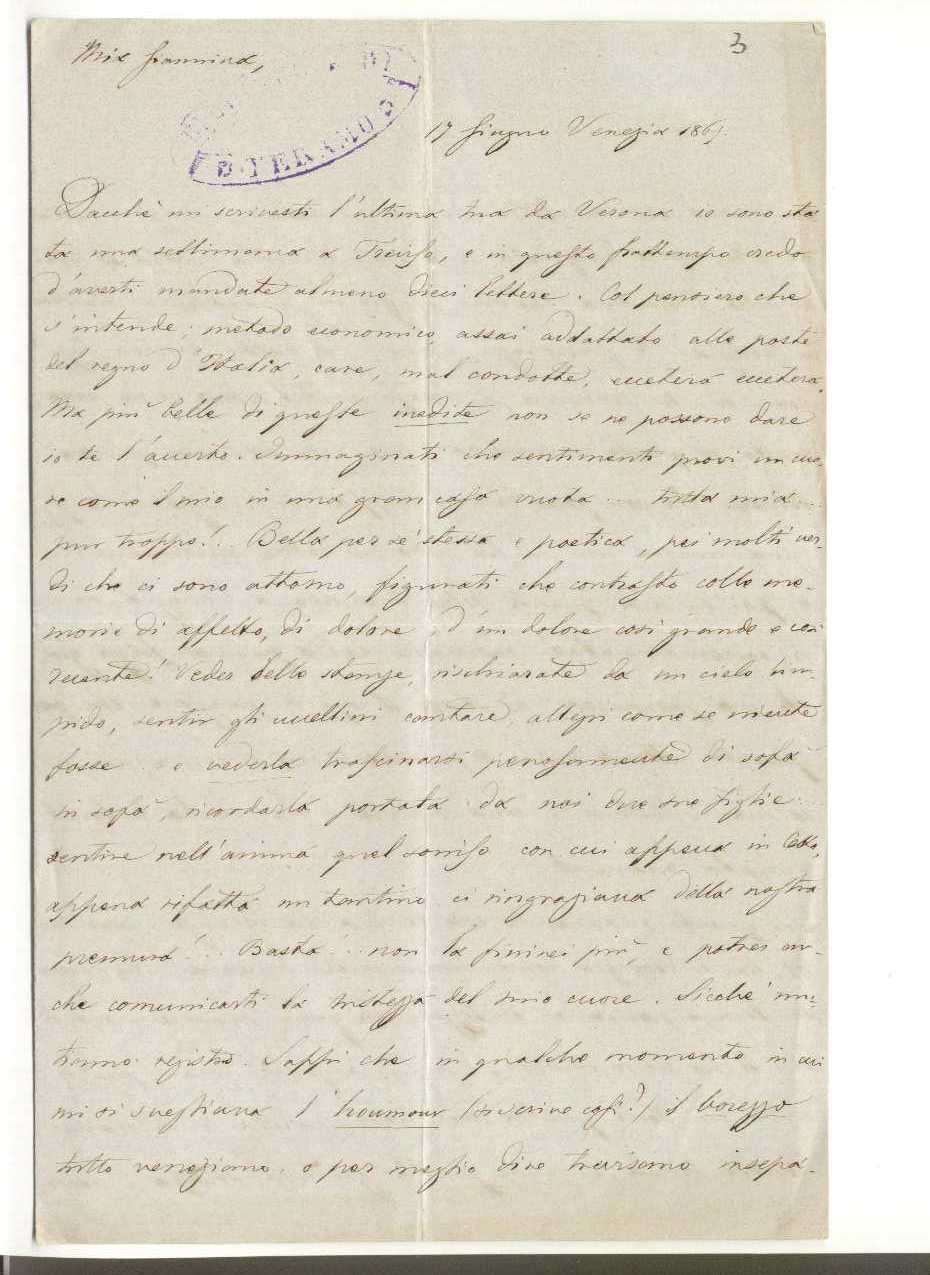 3
Mia Giannina,
TERAMO
17 Giugno Venezia 186
Dacchè mi scrivesti l'ultima tua da Verona io sono sta
ta una settimana a Treviso, e in questo frattempo credo
d'averti mandate almeno dieci lettere. Col pensiero che
s'intende; metodo economico, assai addattato alle poste
del regno d'Italia, care, mal condotte, eccetera eccetera.
Ma più belle di queste inedite non se ne possono dare
io te l'averto. Immaginati che sentimenti provi un cuo-
re come il mio in una gran casa vuota... tutta mia...
pur troppo!.. Bella per sè stessa e poetica, pei molti ver-
di che ci sono attorno, figurati che contrasto colle me-
morie di affetto, di dolore, d'un dolore così grande e così
recente! Veder belle stanze, rischiarate da un cielo lim-
pido, sentir gli uccellini cantare allegri come se niente
fosse.. e vederla trascinarsi penosamente di sofà
in sofà, ricordarla portata da noi due sue figlie.
sentire nell'anima quel sorriso con cui appena in letto,
appena rifatta un tantino ci ringraziava della nostra
premura!.. Basta!.. non la finirei più, e potrei an-
che comunicarti la tristezza del mio cuore. Sicchè mu-
tiamo registro. Sappi che in qualche momento in cui
mi si svegliava l'houmour (si scrive così?) il borezzo
tutto veneziano, o per meglio dire trevisano insepa-